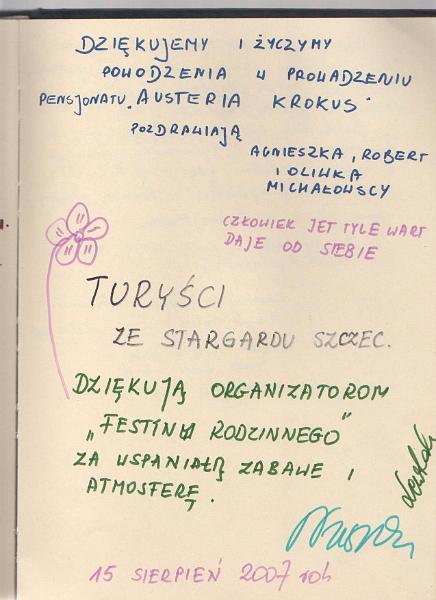 DZIĘKUJEMY I ŻYCZYMY
POWODZENIA W PROWADZENIU
PENSJONATU "AUSTERIA KROKUS"
POZDRAWIAJĄ
AGNIESZKA, ROBERT
I OLIWKA
MICHAŁOWSCY
CZŁOWIEK JET TYLE WART
DAJE OD SIEBIE
TURYŚCI
ZE STARGARDU SZCZEC.
DZIĘKUJĄ ORGANIZATOROM
„FESTINU RODZINNEGO"
ZA WSPANIAŁĄ ZABAWE I
ATMOSFERĘ.
15 SIERPIEŃ 2007 rok